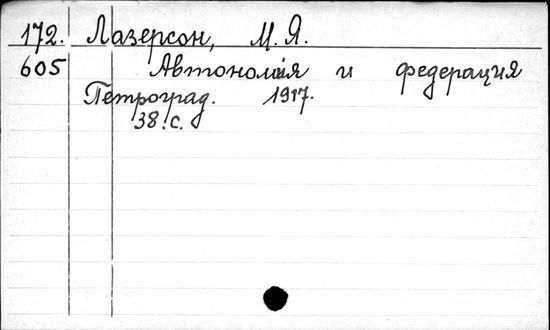 172. Лазерсон, М. Я.
605 Автономия и федерация
Петроград. 1917.
38. с.